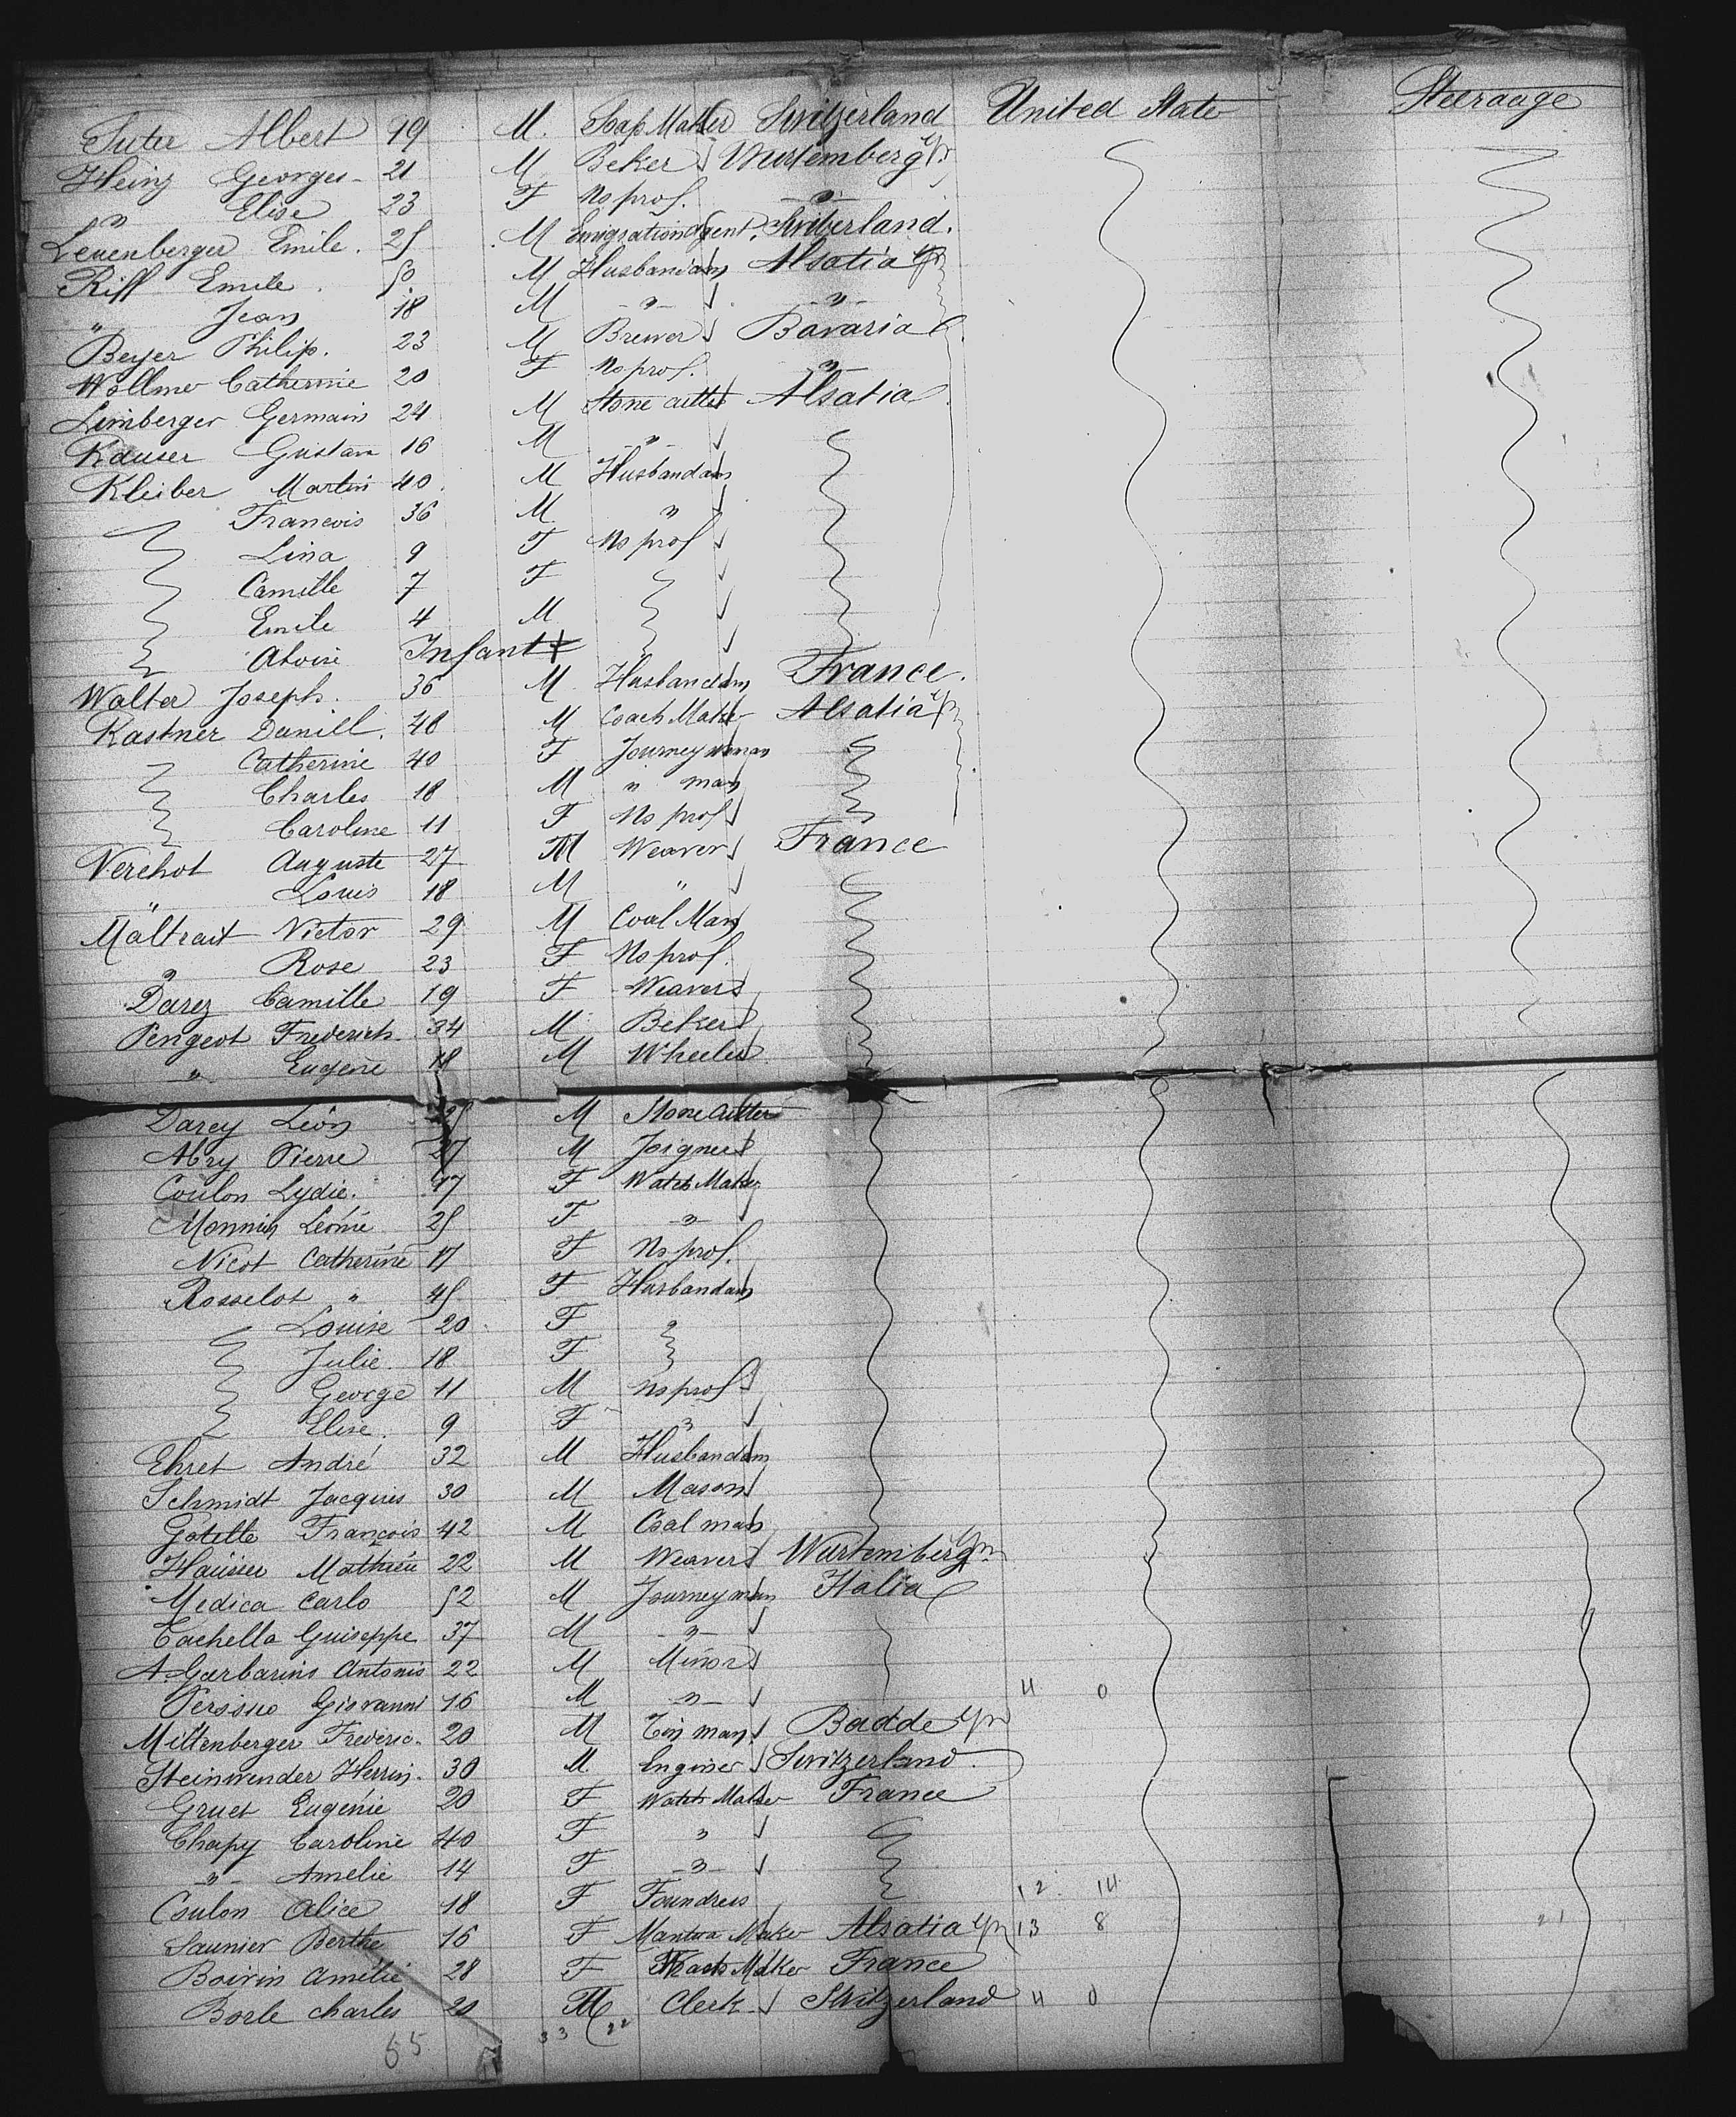 Suter Albert 19 M. Soap Maker Switzerland United State Steeraage
Heinz Georges 21 M Beker Wurtemberg
" Elise 23 F No prof. "
Leuenberger Emile. 25 M Emigration Agent. Switerland.
Riff Emile. 50 M Husbandam Alsatia
" Jean 18 M " "
Beyer Philip. 23 M Brewer Bavaria
Wollmer Catherine 20 F No prof. "
Limberger Germain 24 M Stone cutter Alsatia
Kauser Gustave 16 M "
Kleiber Martin 40. M Husbandam
Francois 36 M "
Lina 9 F No prof
Camille 7 F
Emile 4 M
Infant
Walter Joseph. 36 M Husbandam France.
Kastner Daniell. 48 M Coach Maker Alsatia
Catherine 40 F Journeywoman
Charles 18 M " man
Caroline 11 F No prof
Verchot Auguste 27 M Weaver France
" Louis 18 M "
Maltrait Victor 29 M Coal Man
" Rose 23 F No prof.
Darez Camille 19 F Weaver
Peugeot Frederich. 34 M Beker
" Eugene 18 M Wheeler
Darey Léon M Stone cutter
Abry Pierre 27 M Joigneer
Coulon Lydie. 17 F Watch Maker
Monnin Léonie 25 F "
Nicot Catherine 17 F No prof.
Rosselot " 45 F Husbandam
Louise 20 F "
Julie. 18 F
George 11 M No prof
Elise. 9 F "
Ehret André 32 M Husbandam
Schmidt Jacques 30 M Mason
Gotelle François 42 M Coal man
Hausser Mathieu 22 M Weaver Wurtemberg
Medica Carlo 52 M Journeyman Italia
Cachella Guiseppe 37 M "
A. Garbarini Antonio 22 M Minor
Giovanni 16 M " 11 0
Mittenberger Frederic. 20 M Tin man. Badde
Steinwender Herrin. 30 M. Enginer Switzerland
Gruet Eugénie 20 F Watch Maker France
Chapy Caroline 40 F "
" Amelie 14 F "
Coulon Alice 18 F Foundress 12. 14
Saunier Berthe 16 F Mantua Maker Alsatia 13 8 21
Boivin Amélie 28 F Maker France
Borle Charles 20 M Clerk Switzerland 11 0
55 33 22